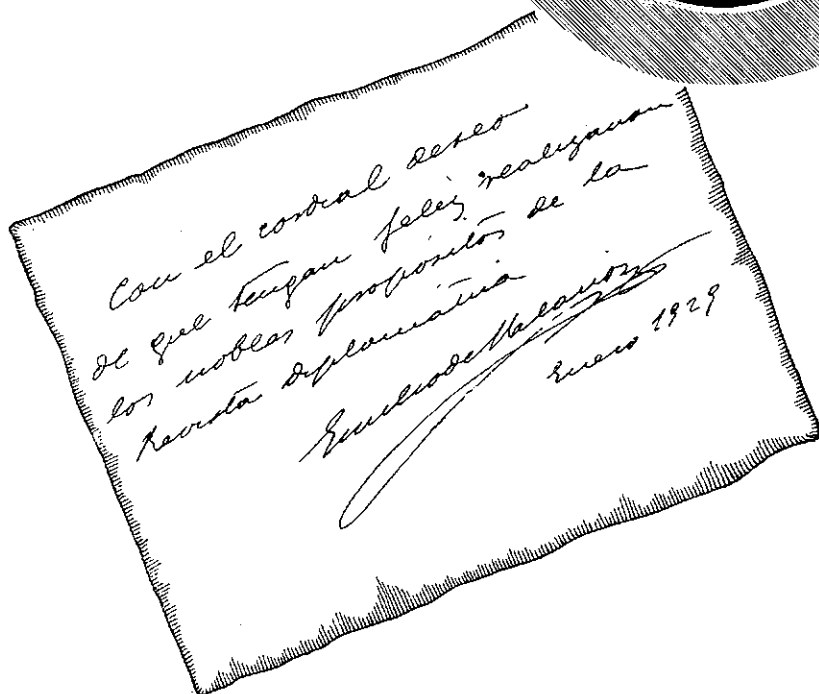 Con el cordial deseo
de que tengan feliz realización
los nobles propósitos de la
Revista diplomática
Emilio de Palacios
Enero 1929